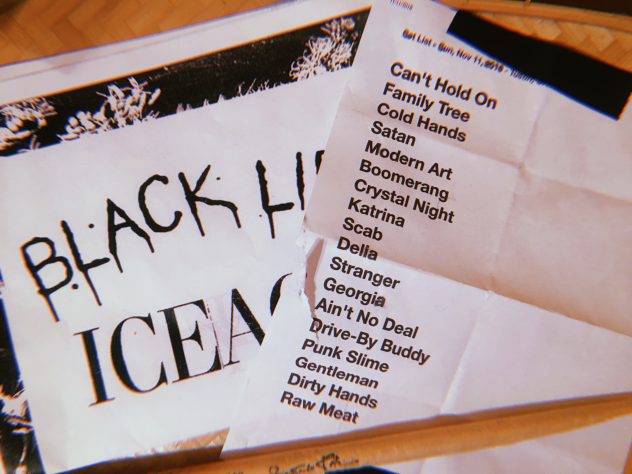 BLACK LI
ICEAG
Set List - Sun, Nov 11, 2018 -
Can't Hold On
Family Tree
Cold Hands
Satan
Modern Art
Boomerang
Crystal Night
Katrina
Scab
Delia
Stranger
Georgia
Ain't No Deal
Drive-By Buddy
Punk Slime
Gentleman
Dirty Hands
Raw Meat